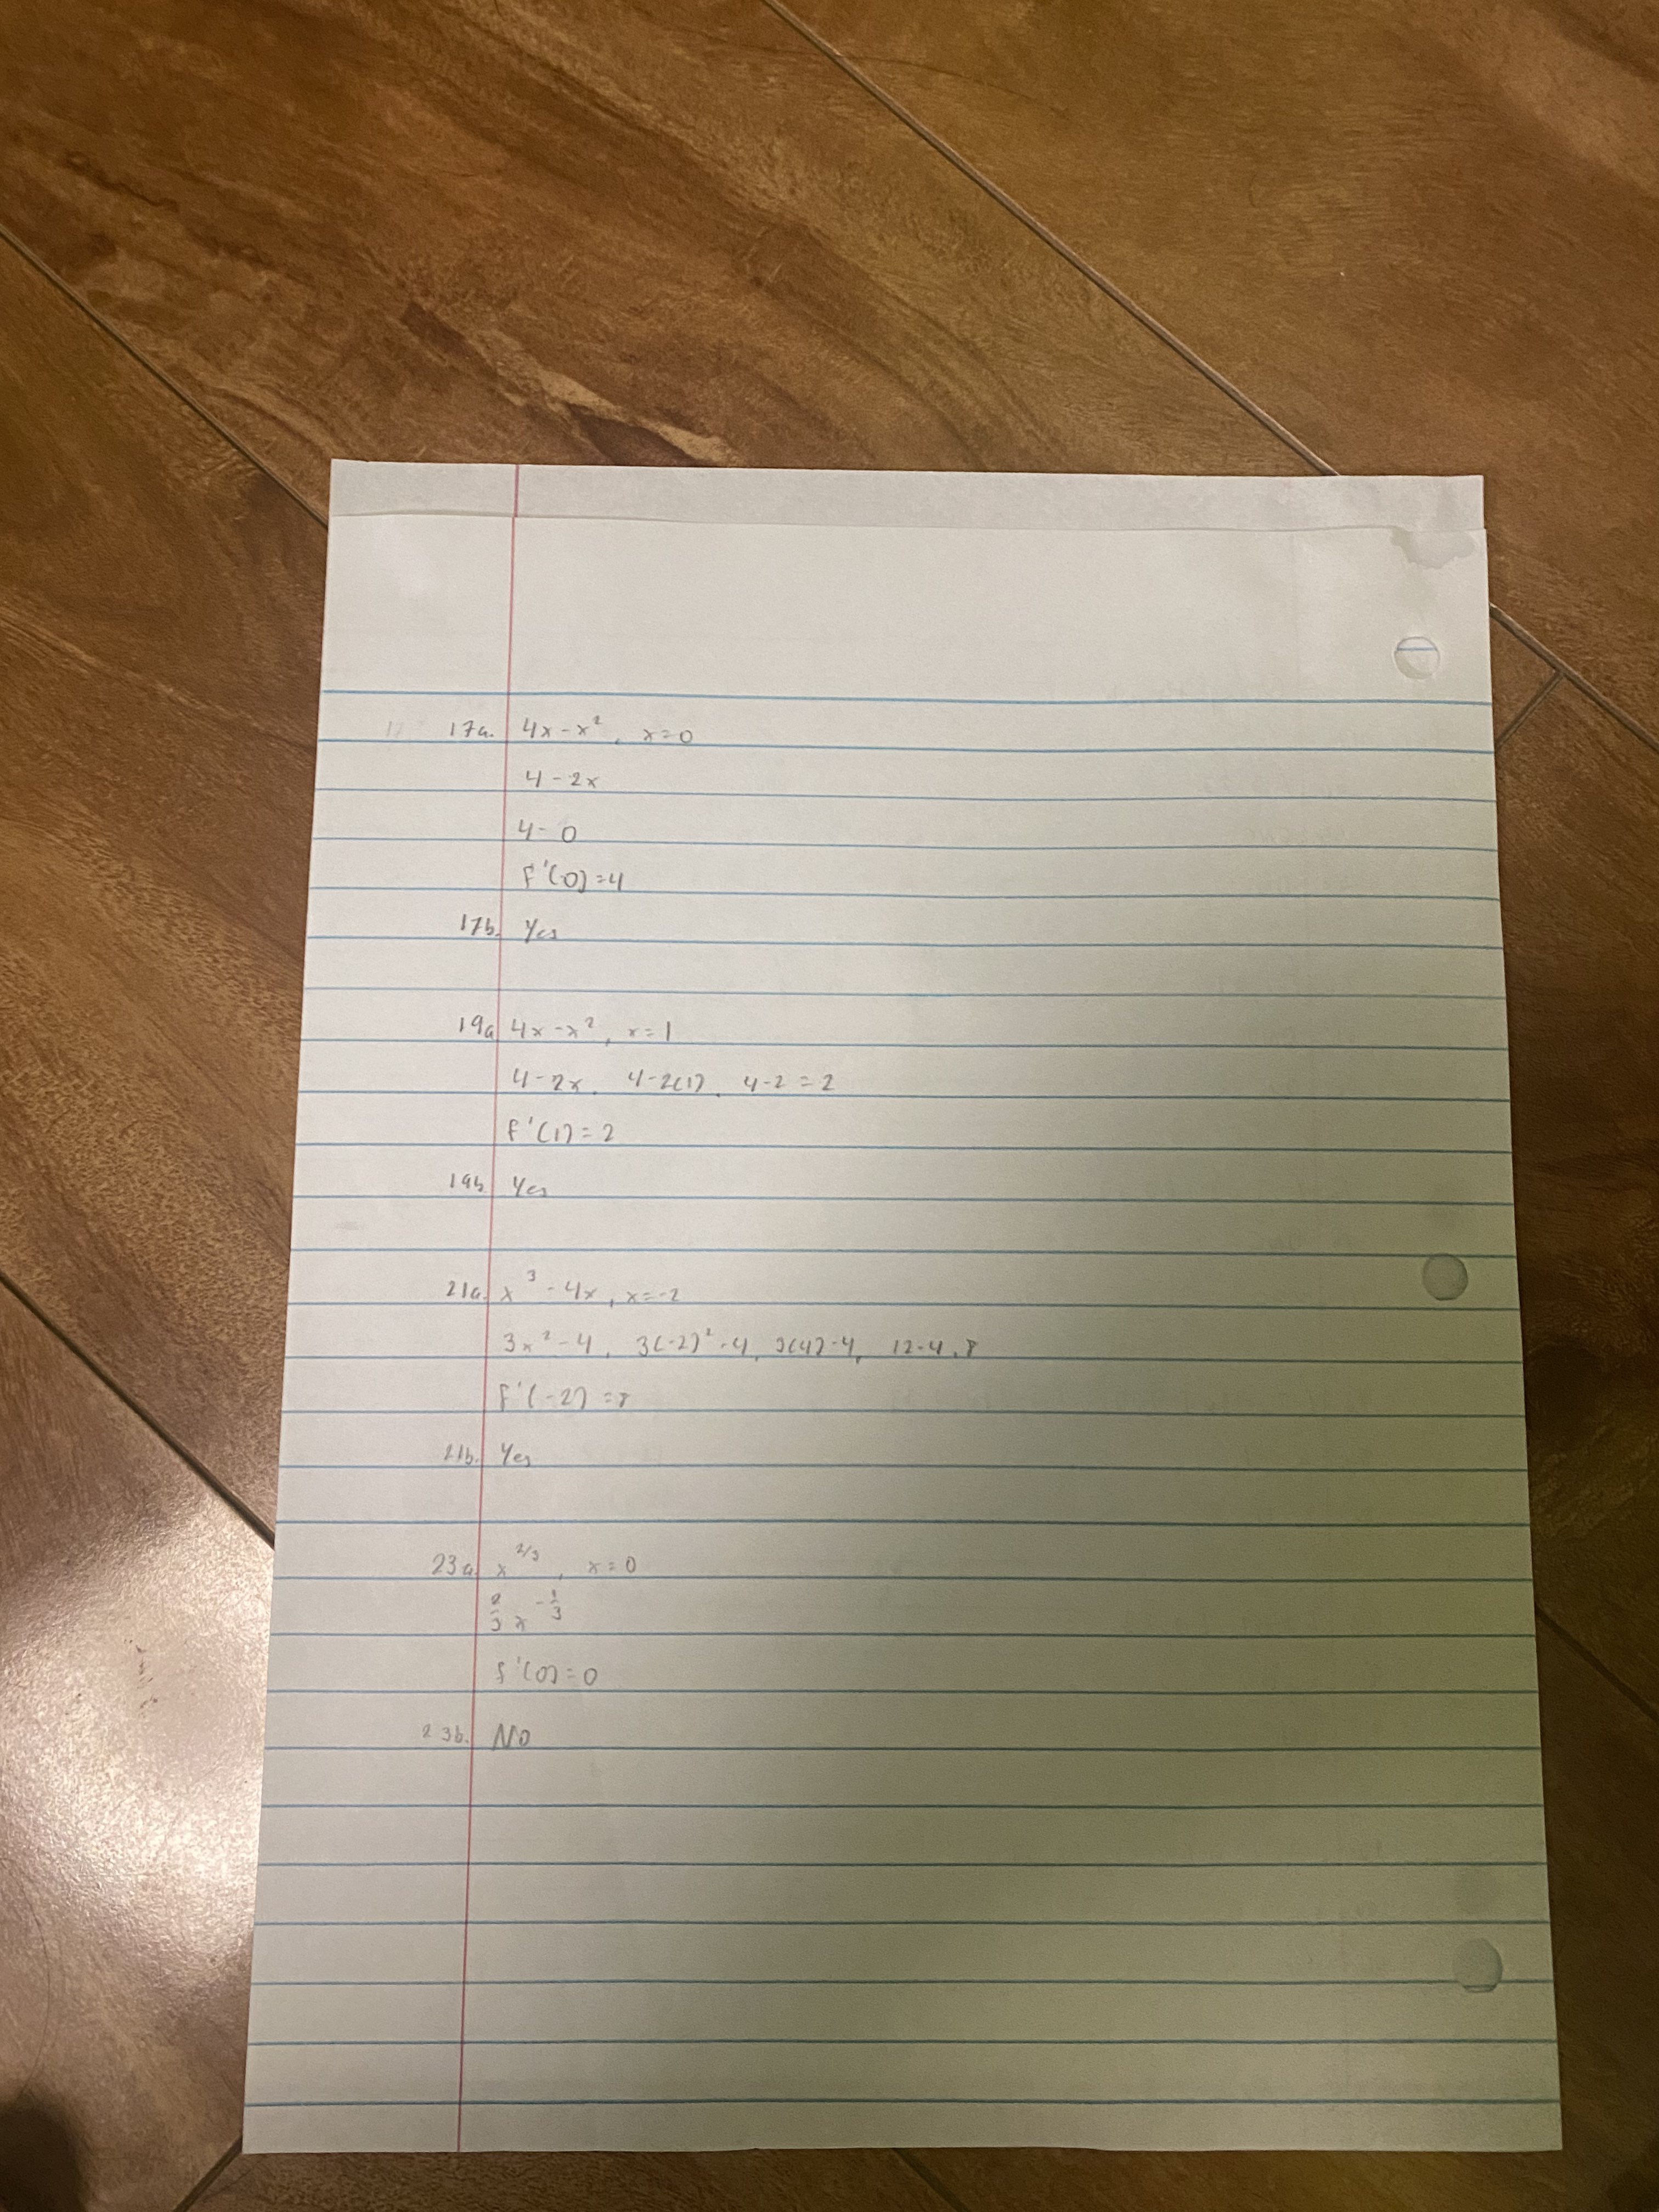 17a. 4x - x², x=0
4 - 2x
4 - 0
f'(0)=4
17b. Yes
19a 4x - x², x=1
4 - 2x, 4-2(1), 4-2 = 2
f'(1) = 2
19b Yes
21a. x³ - 4x, x=-2
3x² - 4, 3(-2)² - 4, 3(4)-4, 12-4, 8
f'(-2) = 8
21b. Yes
23a. x^2/3, x=0
2/3 x^-1/3
f'(0) = 0
23b. No